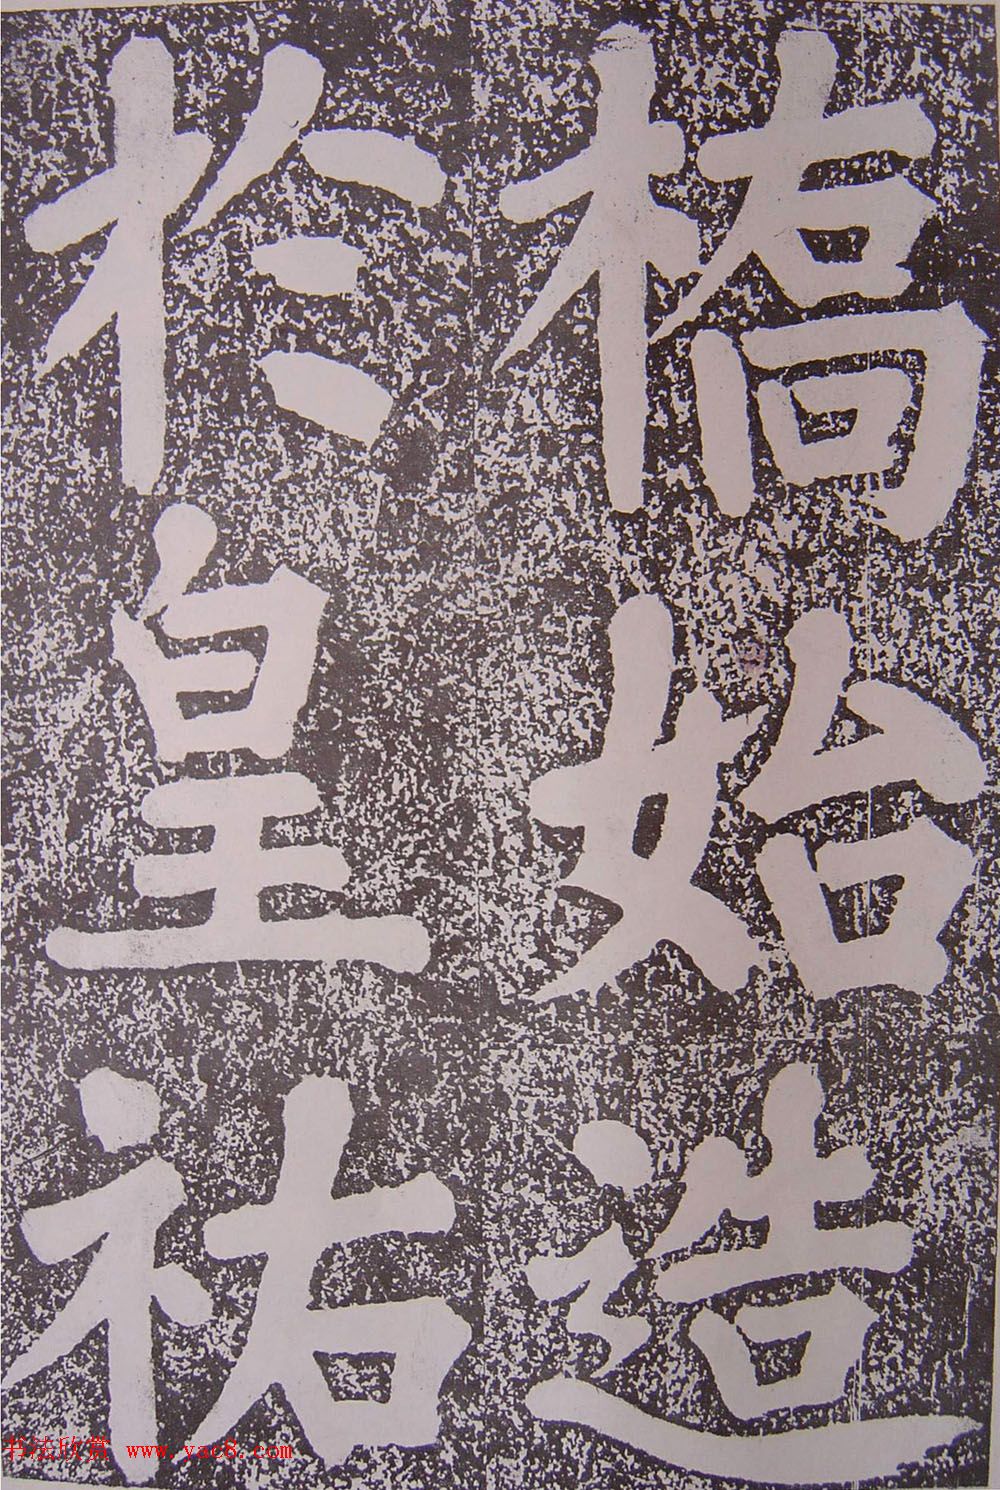 橋始造
於皇祐
书法欣赏 www.yac8.com